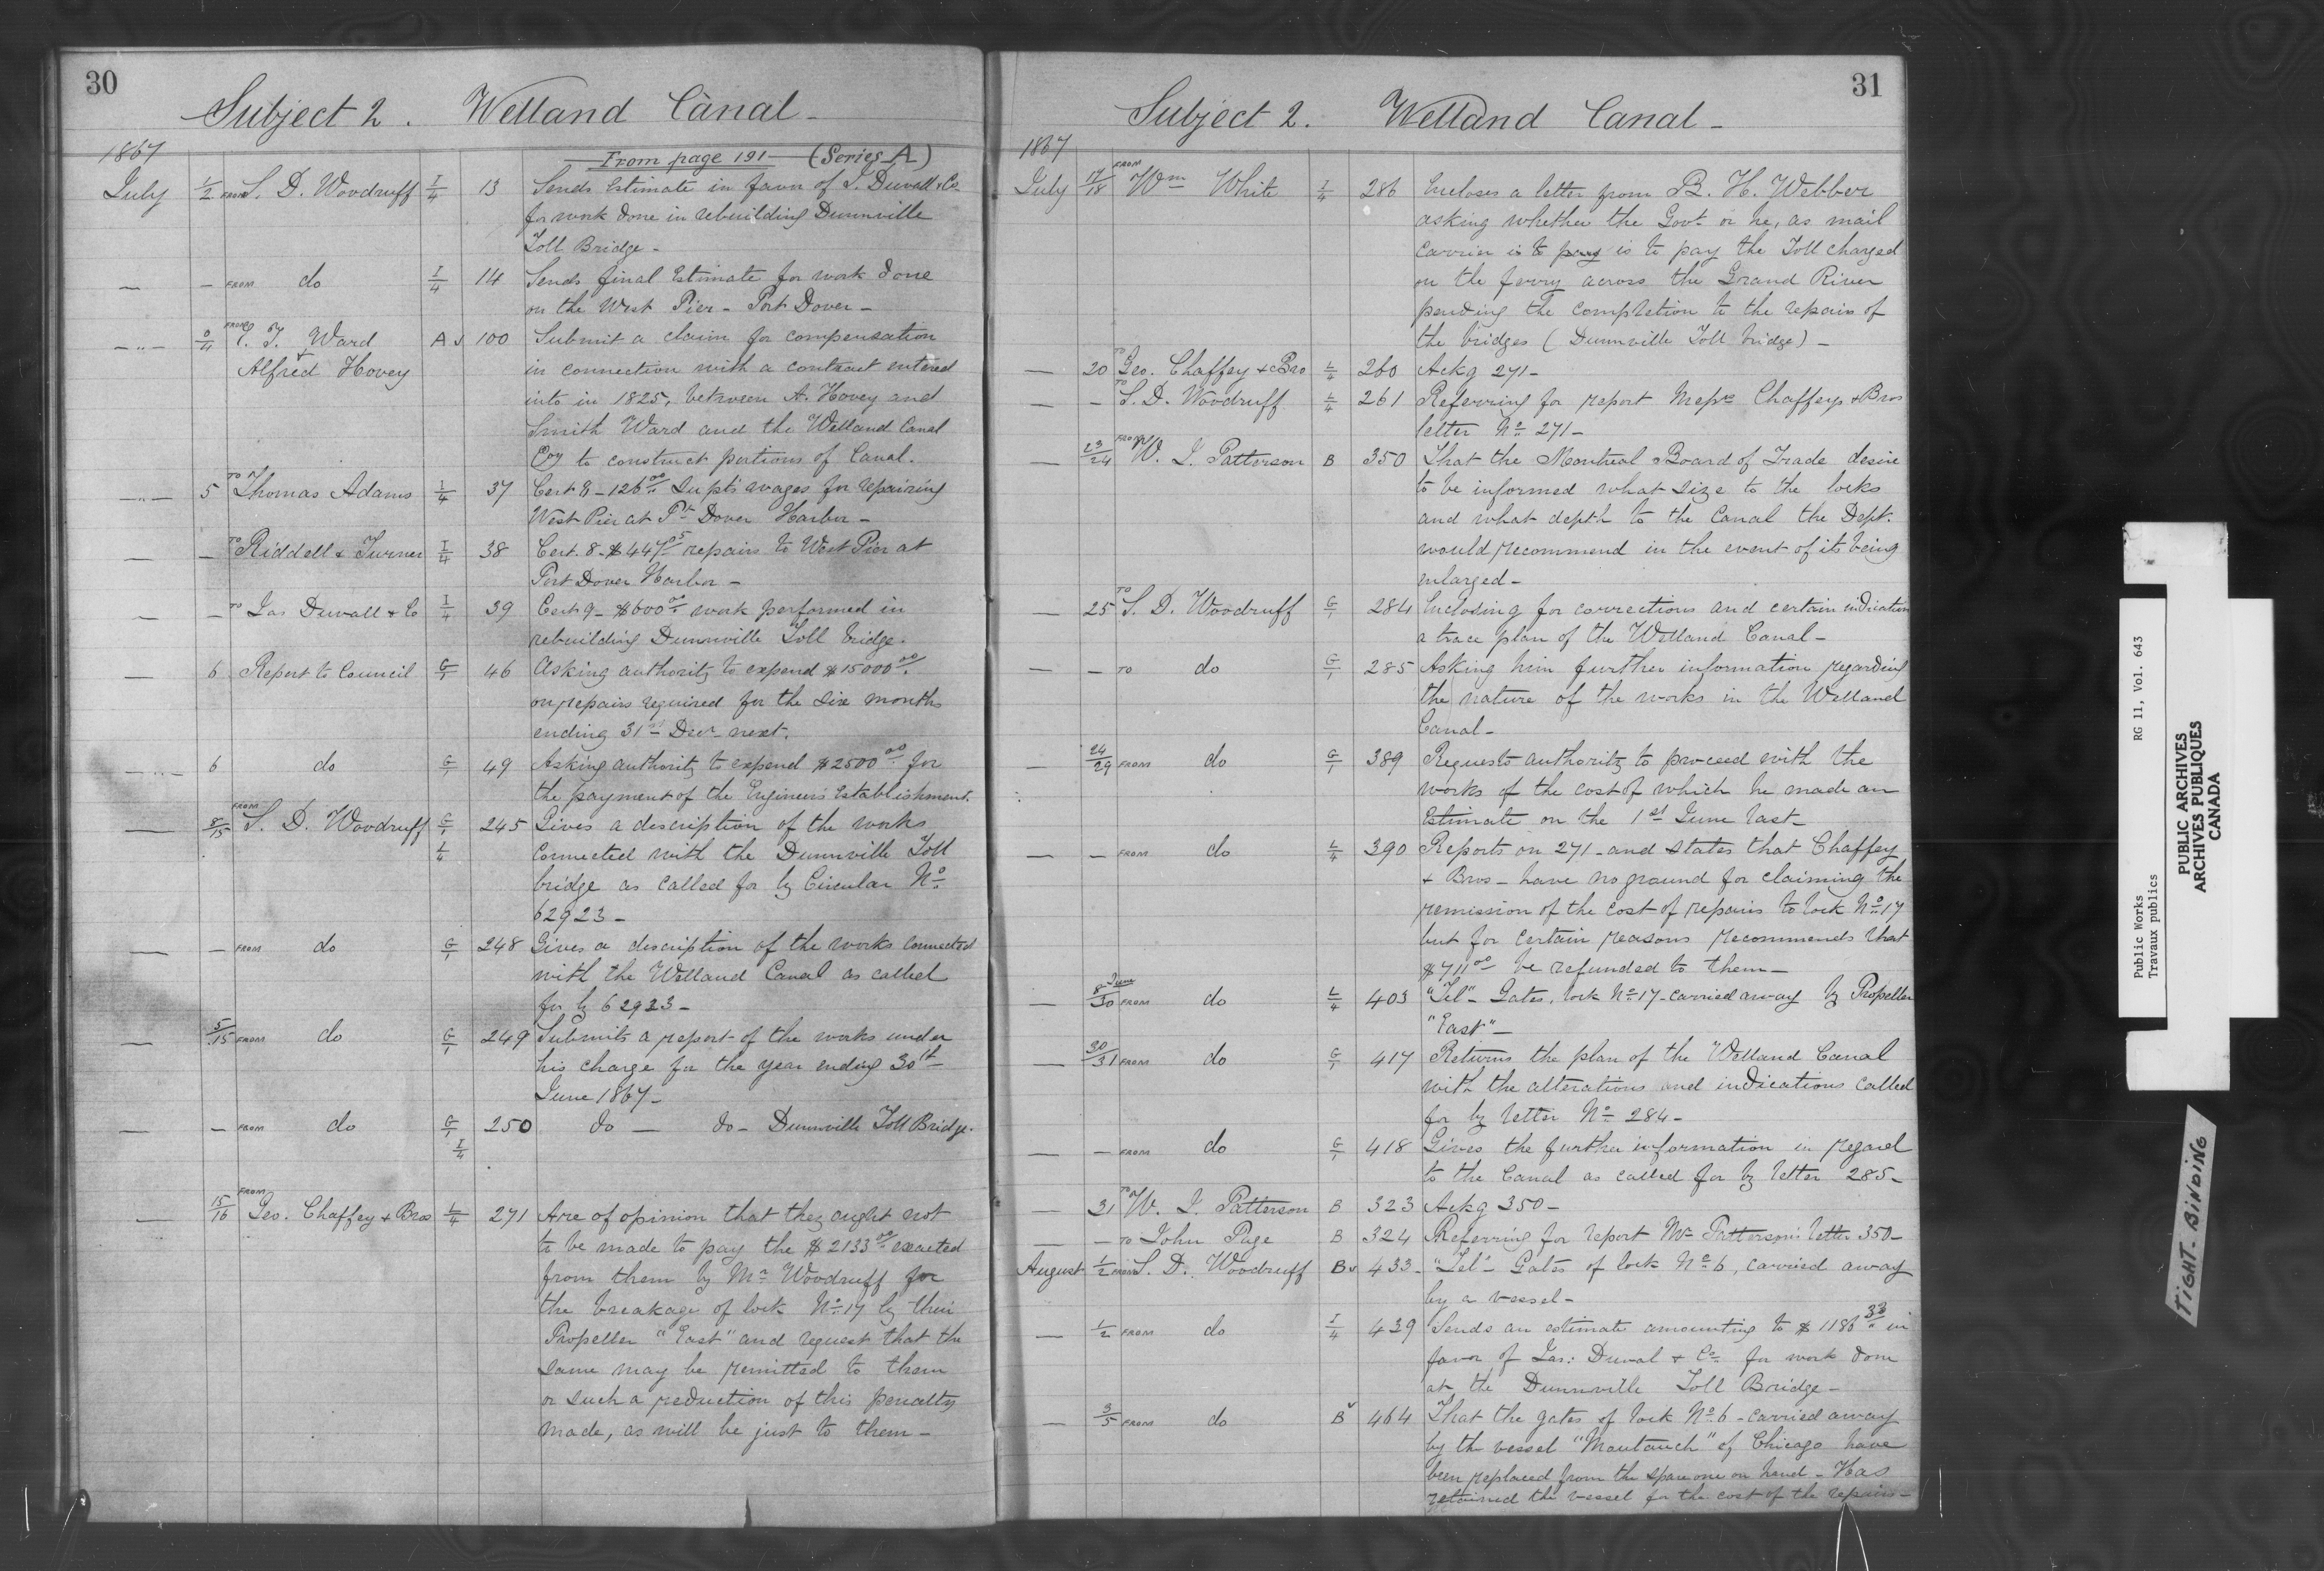 30
Subject 2. Welland Canal -
1867
From page 191 - (Series A)
July 1/2 FROM S. D. Woodruff I/4 13 Sends Estimate in favor of J. Duvall & Co
for work done in rebuilding Dunnville
Toll Bridge -
— - FROM do I/4 14 Sends final Estimate for work done
on the West Pier - Port Dover -
— " — /4 FROM Ward A 100 Submit a claim for compensation
& Alfred Hovey in connection with a contract entered
into in 1825, between A. Hovey and
Smith Ward and the Welland Canal
Coy to construct portions of Canal.
— " — 5 TO Thomas Adams I/4 37 Cert 8 - 126 00 Supts wages for repairing
West Pier at Pt Dover Harbor -
— — TO Riddell & Turner I/4 38 Cert. 8 - $447 05 repairs to West Pier at
Port Dover Harbor -
— — TO Jas Duvall & Co I/4 39 Cert 9 - $600 00 work performed in
rebuilding Dunnville Toll bridge.
— 6 Report to Council G/1 46 Asking authority to expend $15000 00
on repairs required for the six months
ending 31st Decr next.
— " — 6 do G/1 49 Asking authority to expend $2500 00 for
the payment of the Engineers Establishment.
— 8/15 FROM S. D. Woodruff G/1 245 Gives a description of the works
L/4 connected with the Dunnville Toll
bridge as called for by Circular No
62923 -
— - FROM do G/1 248 Gives a description of the works connected
with the Welland Canal as called
for by 62923 -
— 5/15 FROM do G/1 249 Submits a report of the works under
his charge for the year ending 30th
June 1867 -
— - FROM do G/1 250 do — do - Dunnville Toll Bridge.
I/4
— 15/16 FROM Geo. Chaffey & Bros L/4 271 Are of opinion that they ought not
to be made to pay the $2133 00 exacted
from them by Mr Woodruff for
the breakage of lock No 17 by their
Propeller "East" and request that the
same may be remitted to them
or such a reduction of this penalty
made, as will be just to them -
31
Subject 2. Welland Canal -
1867
July 17/18 FROM Wm White I/4 286 Encloses a letter from B. H. Webber
asking whether the Govt or he, as mail
carrier is to pay is to pay the Toll charged
on the ferry across the Grand River
pending the completion to the repairs of
the bridges (Dunnville Toll bridge) -
— 20 TO Geo. Chaffey & Bro L/4 260 Ackg 271 -
— - TO S. D. Woodruff L/4 261 Referring for report Messrs Chaffeys & Bros
letter No 271 -
— 23/24 FROM W. J. Patterson B 350 That the Montreal Board of Trade desire
to be informed what size to the locks
and what depth to the Canal the Dept.
would recommend in the event of its being
enlarged -
— 25 TO S. D. Woodruff G/1 284 Enclosing for corrections and certain indication
a trace plan of the Welland Canal -
— - TO do G/1 285 Asking him further information regarding
the nature of the works in the Welland
Canal -
— 24/29 FROM do G/1 389 Requests authority to proceed with the
works of the cost of which he made an
Estimate on the 1st June last -
— - FROM do L/4 390 Reports on 271 - and states that Chaffey
& Bros - have no ground for claiming the
remission of the cost of repairs to lock No 17
but for certain reasons recommends that
$711 00 be refunded to them -
— 8 June/30 FROM do L/4 403 "Tel" - Gates, lock No 17 - carried away by Propeller
"East" -
— 30/31 FROM do G/1 417 Returns the plan of the Welland Canal
with the alterations and indications called
for by letter No 284 -
— - FROM do G/1 418 Gives the further information in regard
to the Canal as called for by letter 285 -
— 31 TO W. J. Patterson B 323 Ackg 350 -
— - TO John Page B 324 Referring for report Mr Patterson's letter 350 -
August 1/2 FROM S. D. Woodruff B 433 - "Tel" - Gates of lock No 6, carried away
by a vessel -
— 1/2 FROM do I/4 439 Sends an estimate amounting to $1186 33 in
favor of Jas: Duval & Co for work done
at the Dunnville Toll Bridge -
— 3/5 FROM do B 464 That the gates of lock No 6 - carried away
by the vessel "Mautauch" of Chicago have
been replaced from the spare one on hand - Has
retained the vessel for the cost of the repairs -
Public Works RG 11, Vol. 643
Travaux publics
PUBLIC ARCHIVES
ARCHIVES PUBLIQUES
CANADA
TIGHT BINDING